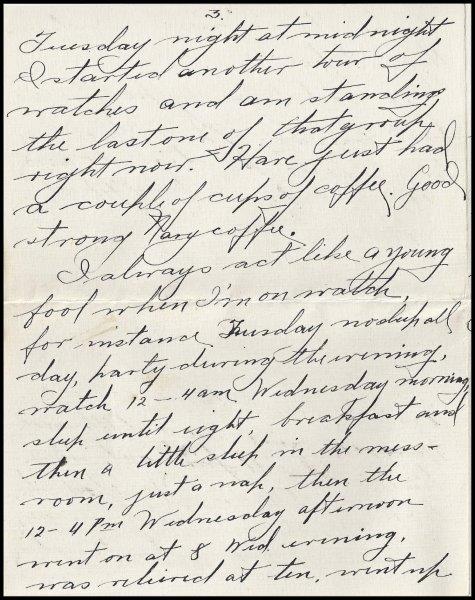 3.
Tuesday night at midnight
I started another tour of
watches and am standing
the last one of that group
right now. Have just had
a couple of cups of coffee. Good
strong Navy coffee.
I always act like a young
fool when I'm on watch,
for instance Tuesday no sleep all
day, party during the evening,
watch 12-4 am Wednesday morning,
sleep until eight, breakfast and
then a little sleep in the mess-
room, just a nap, then the
12-4 Pm Wednesday afternoon
went on at 8 Wed. evening,
was relieved at ten, went up